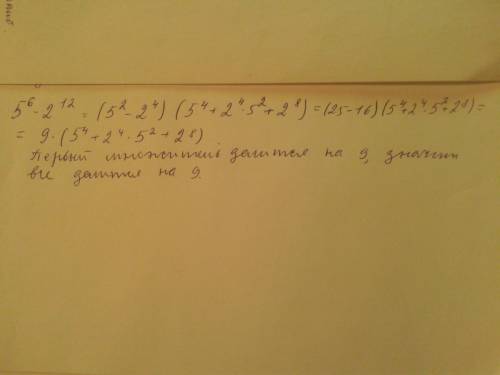 5⁶ - 2¹² = (5² - 2⁴) (5⁴ + 2⁴ · 5² + 2⁸) = (25 - 16) (5⁴ + 2⁴ · 5² + 2⁸) =
= 9 · (5⁴ + 2⁴ · 5² + 2⁸)
Первый множитель делится на 9, значит
все делится на 9.